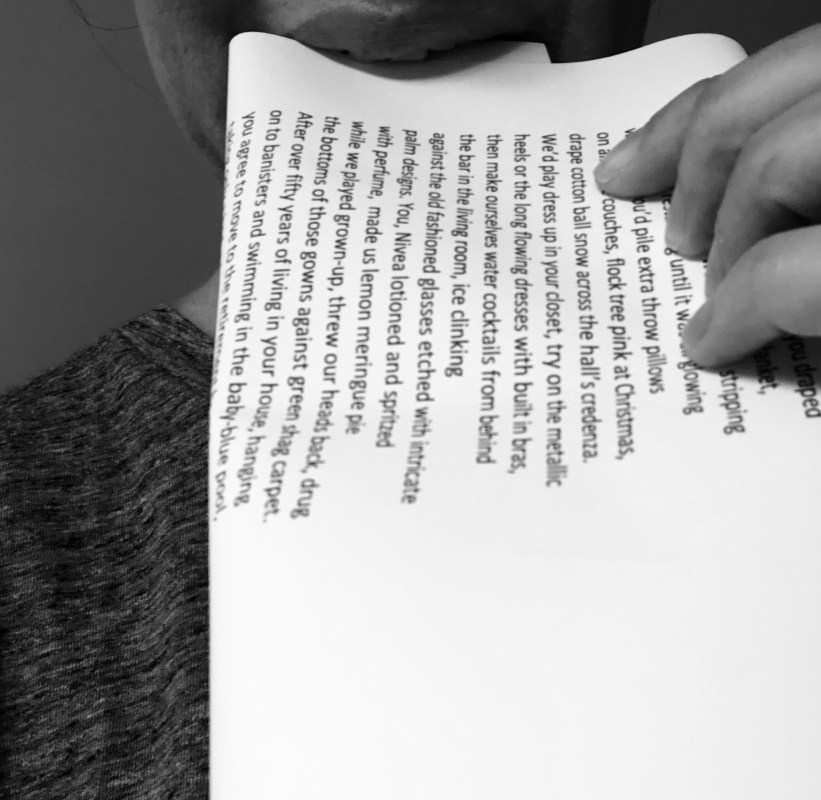 you draped
anket,
stripping
until it was glowing
ou'd pile extra throw pillows
on a couches, flock tree pink at Christmas,
drape cotton ball snow across the hall's credenza.
We'd play dress up in your closet, try on the metallic
heels or the long flowing dresses with built in bras,
then make ourselves water cocktails from behind
the bar in the living room, ice clinking
against the old fashioned glasses etched with intricate
palm designs. You, Nivea lotioned and spritzed
with perfume, made us lemon meringue pie
while we played grown-up, threw our heads back, drug
the bottoms of those gowns against green shag carpet.
After over fifty years of living in your house, hanging
on to banisters and swimming in the baby-blue pool,
you agree to move to the retirement